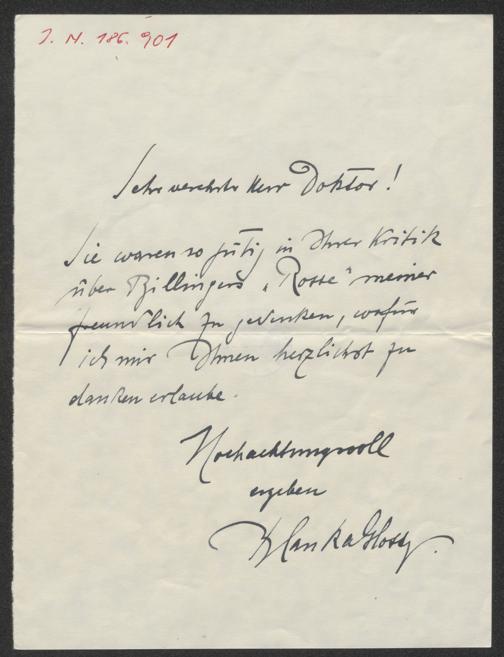 J. N. 186.901
Sehr verehrter Herr Doktor!
Sie waren so gütig in Ihrer Kritik
über Billingers „Rosse" meiner
freundlich zu gedenken, wofür
ich mir Ihnen herzlichst zu
danken erlaube.
Hochachtungsvoll
ergeben
Blanka Glossy.